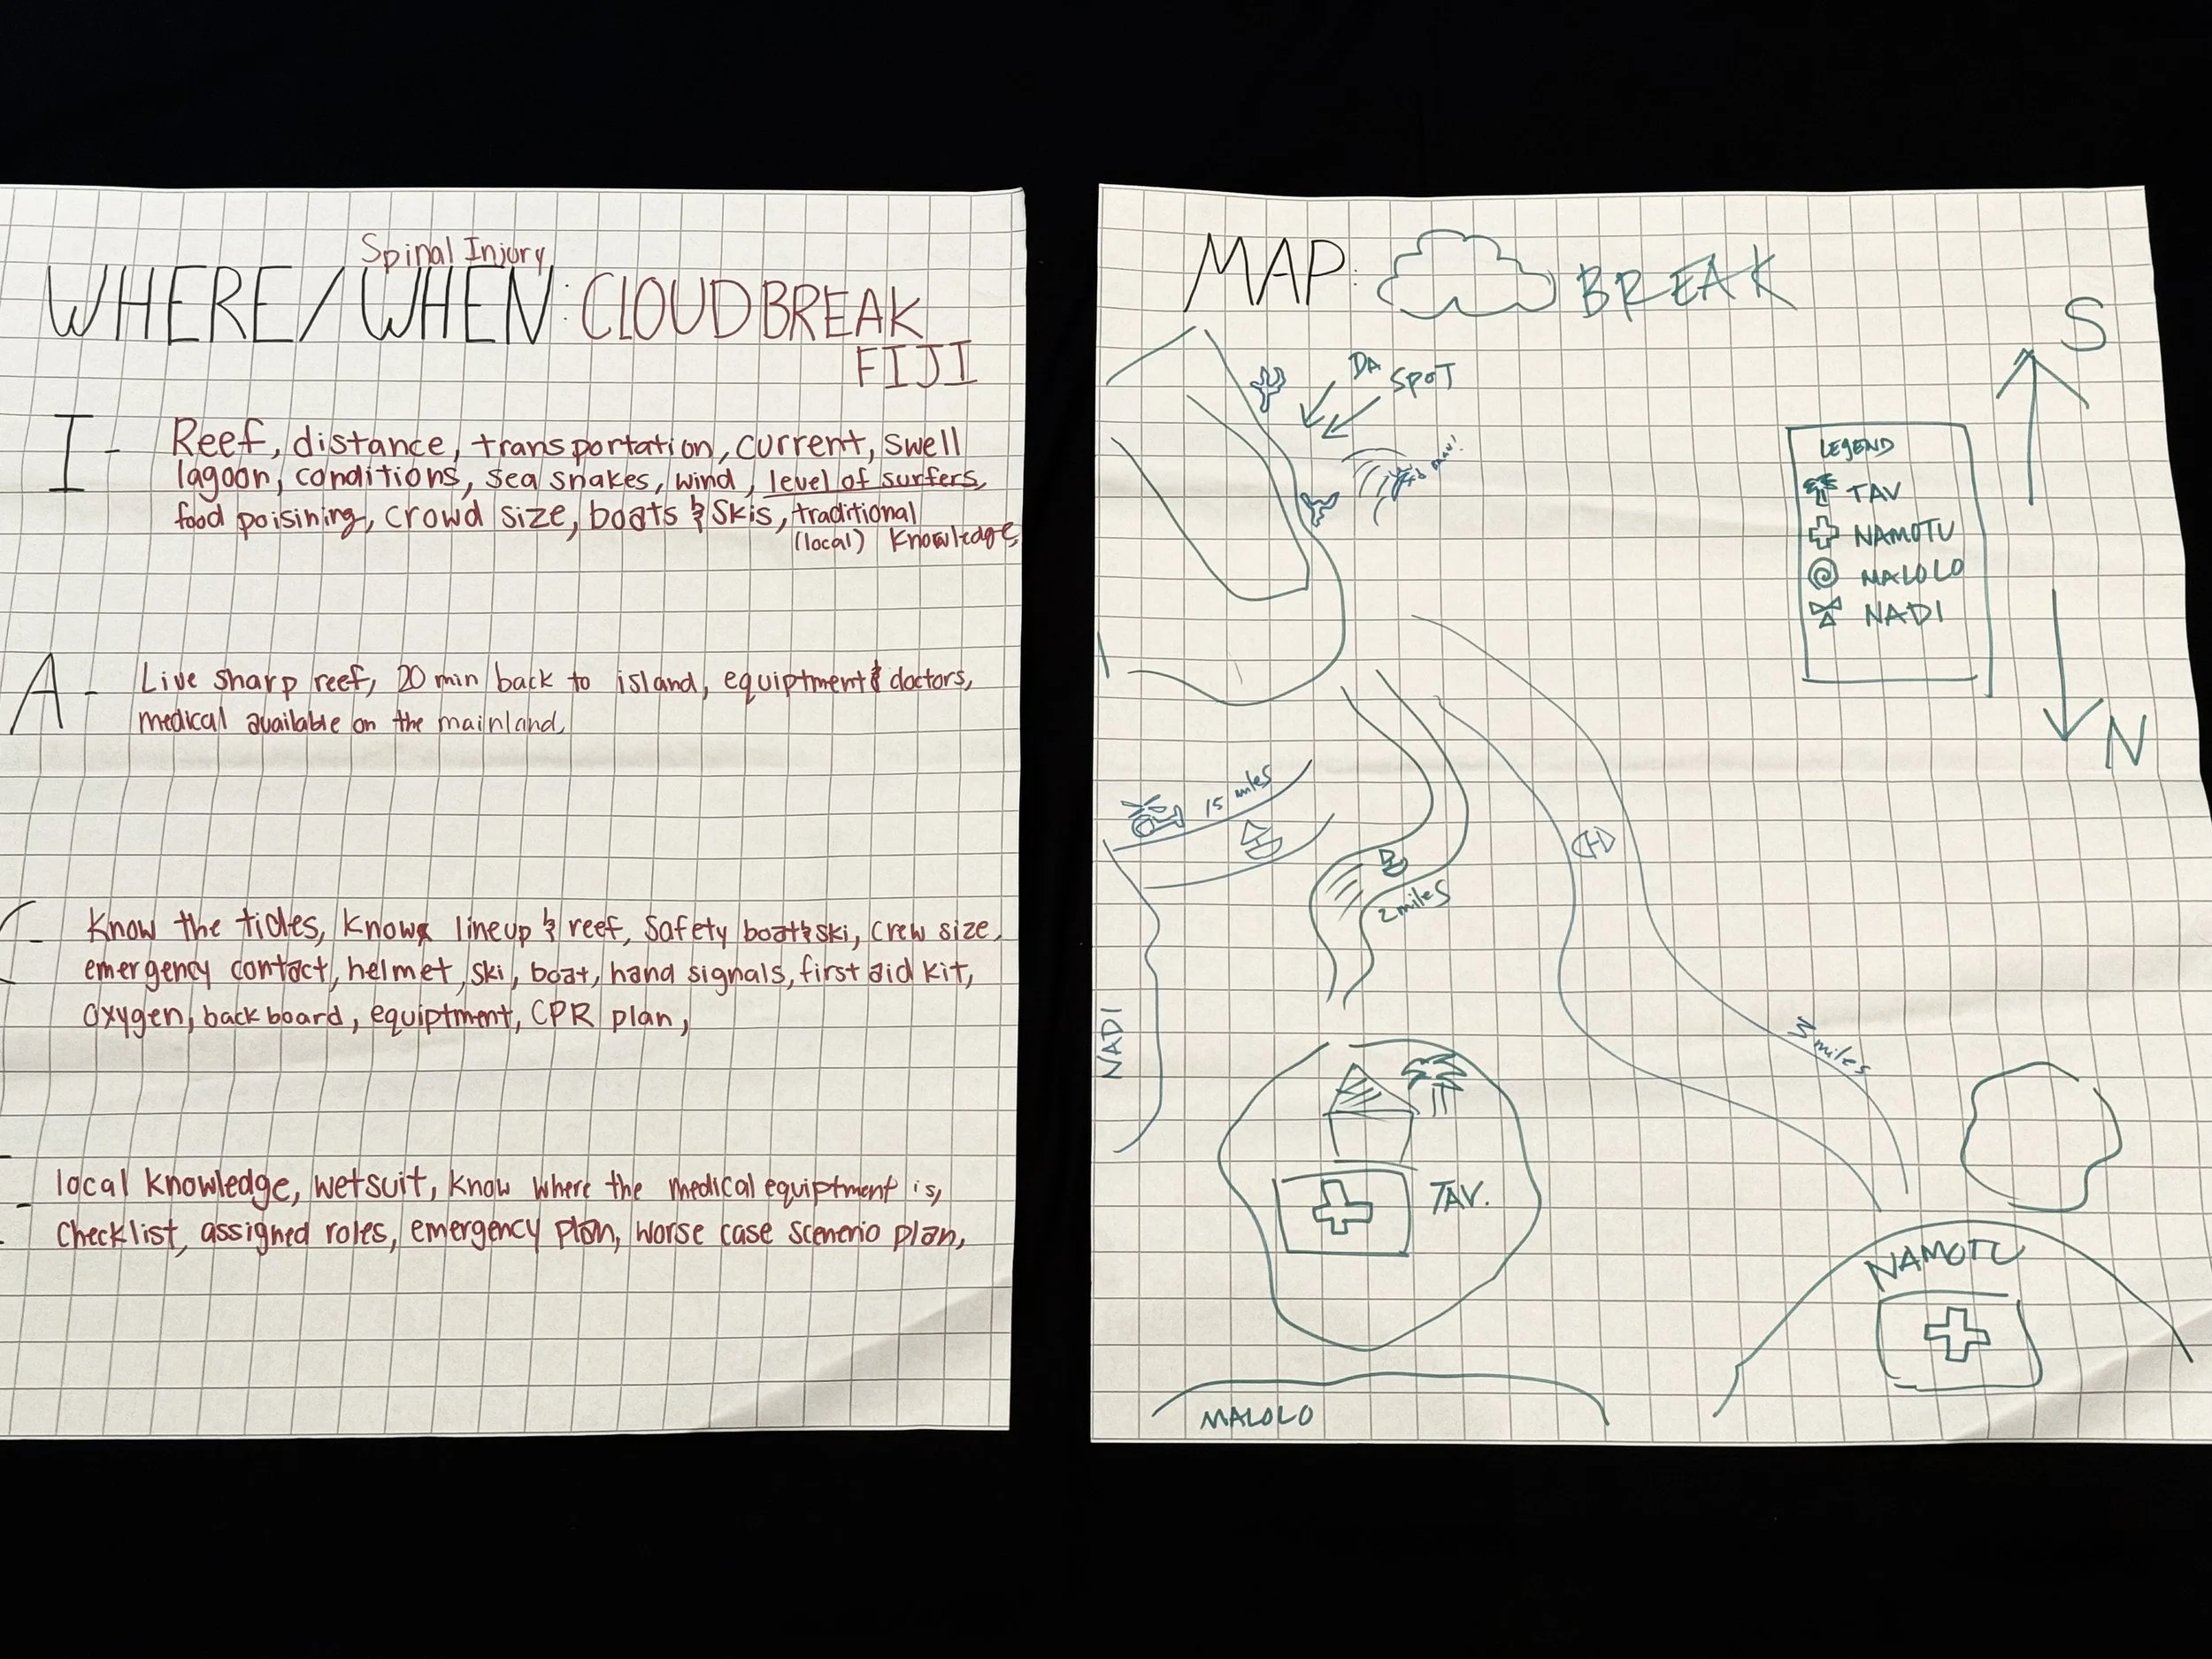 Spinal Injury
WHERE/WHEN: CLOUDBREAK
FIJI
I - Reef, distance, transportation, current, swell
lagoon, conditions, sea snakes, wind, level of surfers,
food poisining, crowd size, boats & skis, traditional
(local) knowledge,
A - Live sharp reef, 20 min back to island, equiptment & doctors,
medical available on the mainland,
C - Know the tides, know lineup & reef, safety boat & ski, crew size,
emergency contact, helmet, ski, boat, hand signals, first aid kit,
oxygen, back board, equiptment, CPR plan,
- local knowledge, wetsuit, know where the medical equiptment is,
checklist, assigned roles, emergency plan, worse case scenerio plan,
MAP: BREAK
S
DA
SPOT
LEGEND
TAV
NAMOTU
MALOLO
NADI
N
15 miles
2 miles
3 miles
NADI
TAV.
NAMOTU
MALOLO